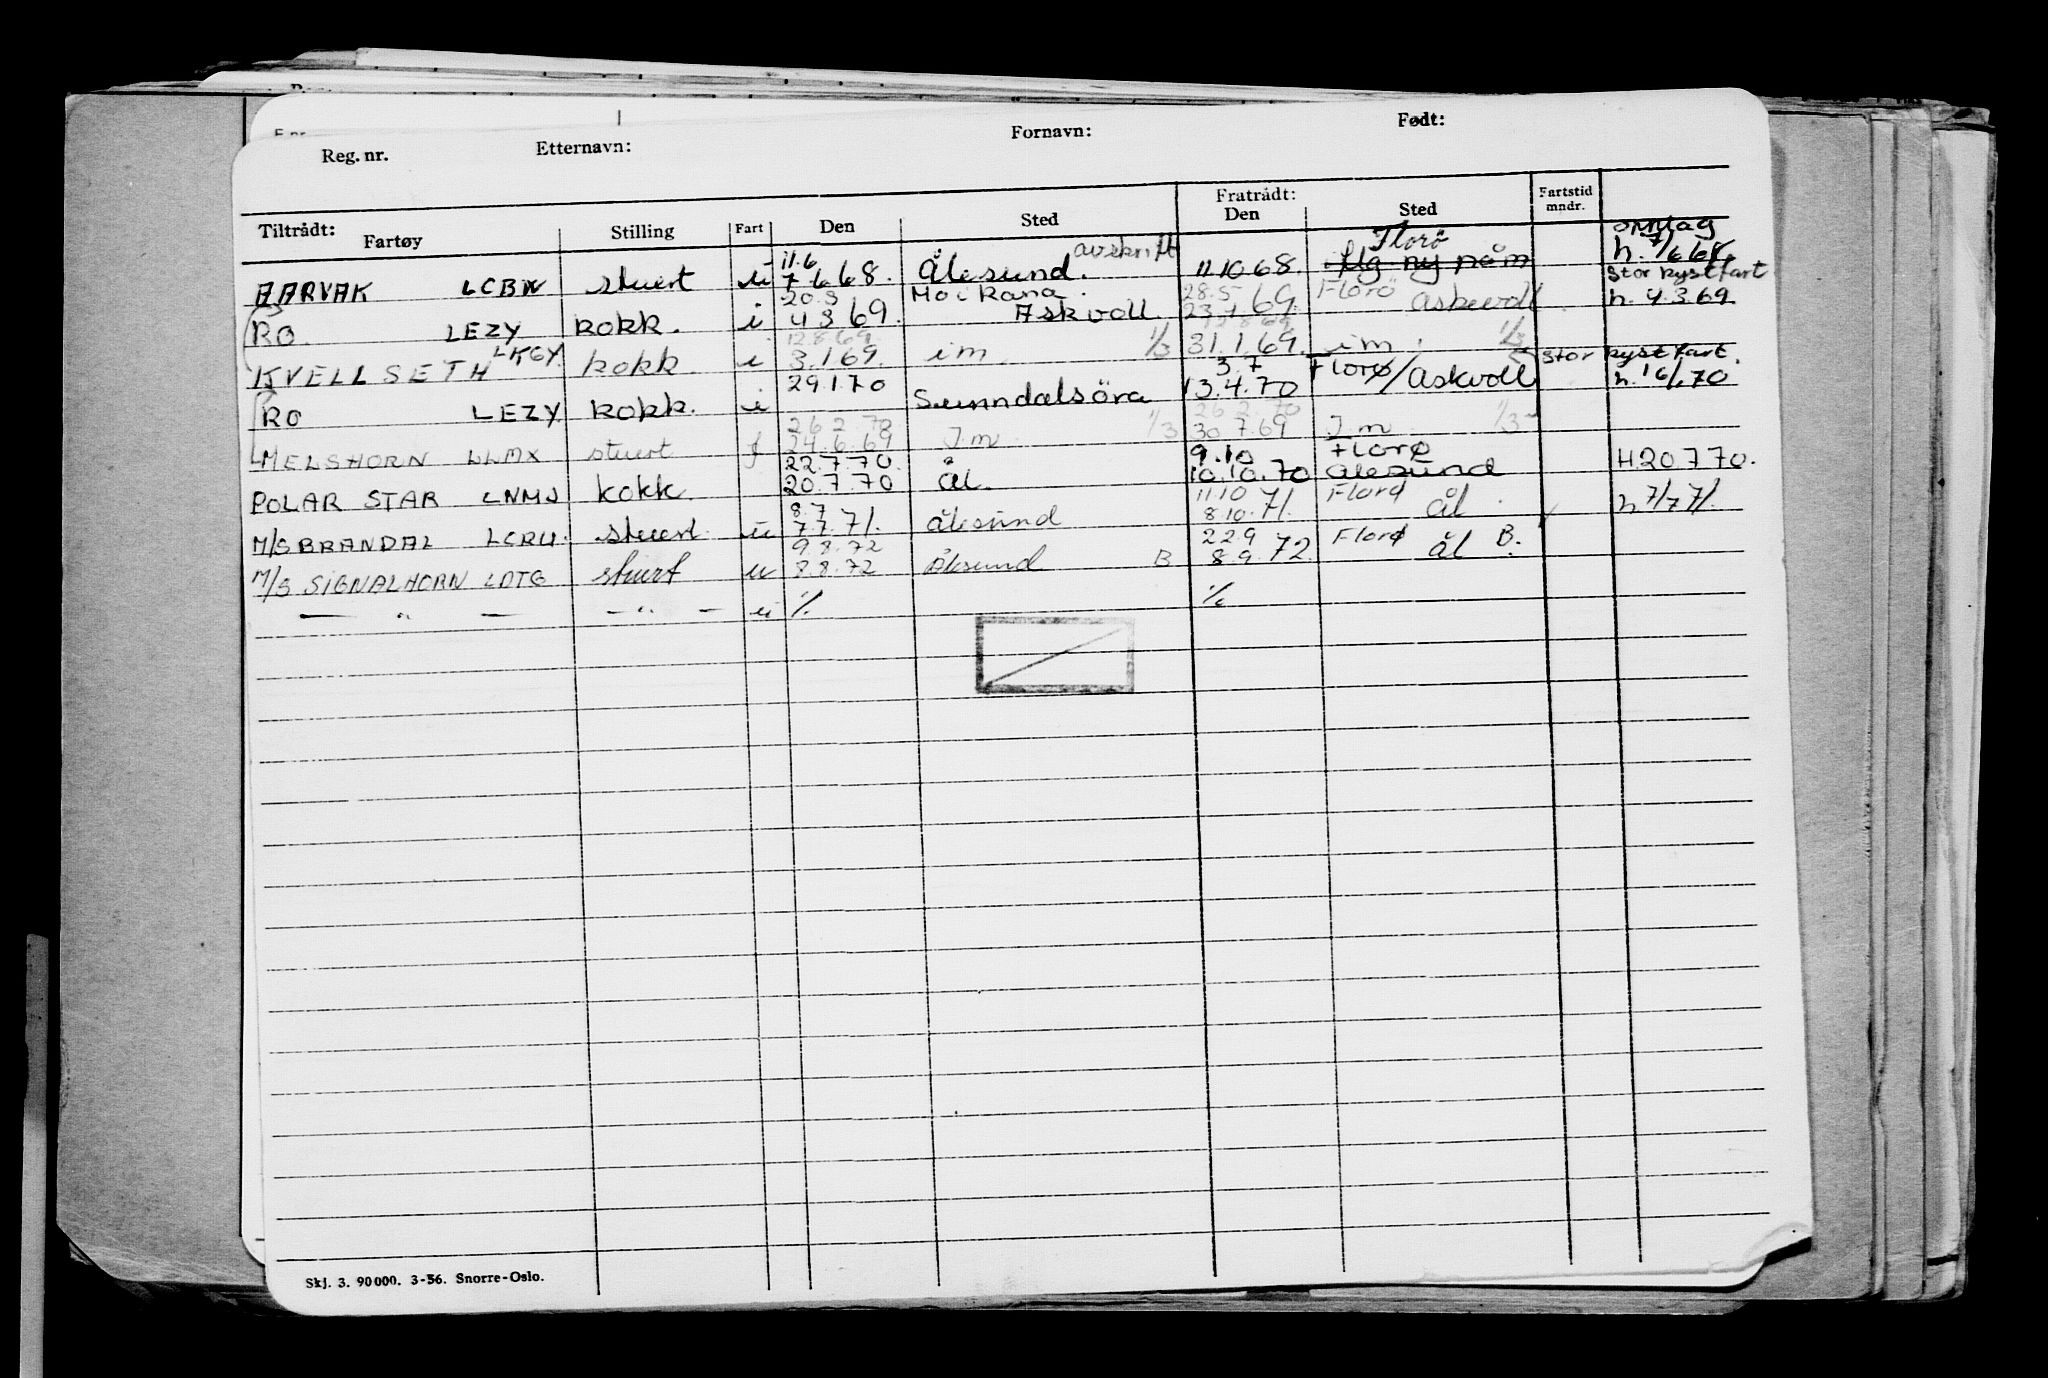 Reg. nr. Etternavn: Fornavn: Født:
Tiltrådt: Fratrådt:
Fartøy Stilling Fart Den Sted Den Sted Fartstid mndr.
11.6 avskrift Florö omlag
AARVAK LCBW stuert u 7 6 68. Ålesund. 11 10 68. h. 7/6 68.
20.3 Mo i Rana. 28.5 Florö Stor kystfart
RO LEZY kokk. i 4 3 69. Askvoll. 23 7 69. Askevoll h. 4.3.69
12.8.69 12.8.69
KVELLSETH LKGY. kokk i 3.1.69. im 1/3 31.1.69. im. 1/3
3.7 Florø/ Stor kystfart.
RO LEZY kokk. u 29.1.70 Sunndalsöra 13.4.70 Askvoll h. 16/1.70
26 2. 70 26 2. 70
MELSHORN LLMX stuert f 24.6.69 I m 1/3 30 7.69 I m 1/3
22.7.70. 9.10 Florø
POLAR STAR LNMJ kokk. 20.7.70 Ål. 10.10.70 Ålesund H 20 7 70.
8.7 11.10 Florø
M/S BRANDAL LCRU. stuert u 7 7. 71. Ålesund 8.10.71. Ål h 7/7 71.
9.8.72 22 9 Florø
M/S SIGNALHORN LDTG stuert u 8.8.72 Ålesund B 8.9.72 Ål B.
— " — — " — u 1/. 1/.
Skj. 3. 90000. 3-56. Snorre-Oslo.